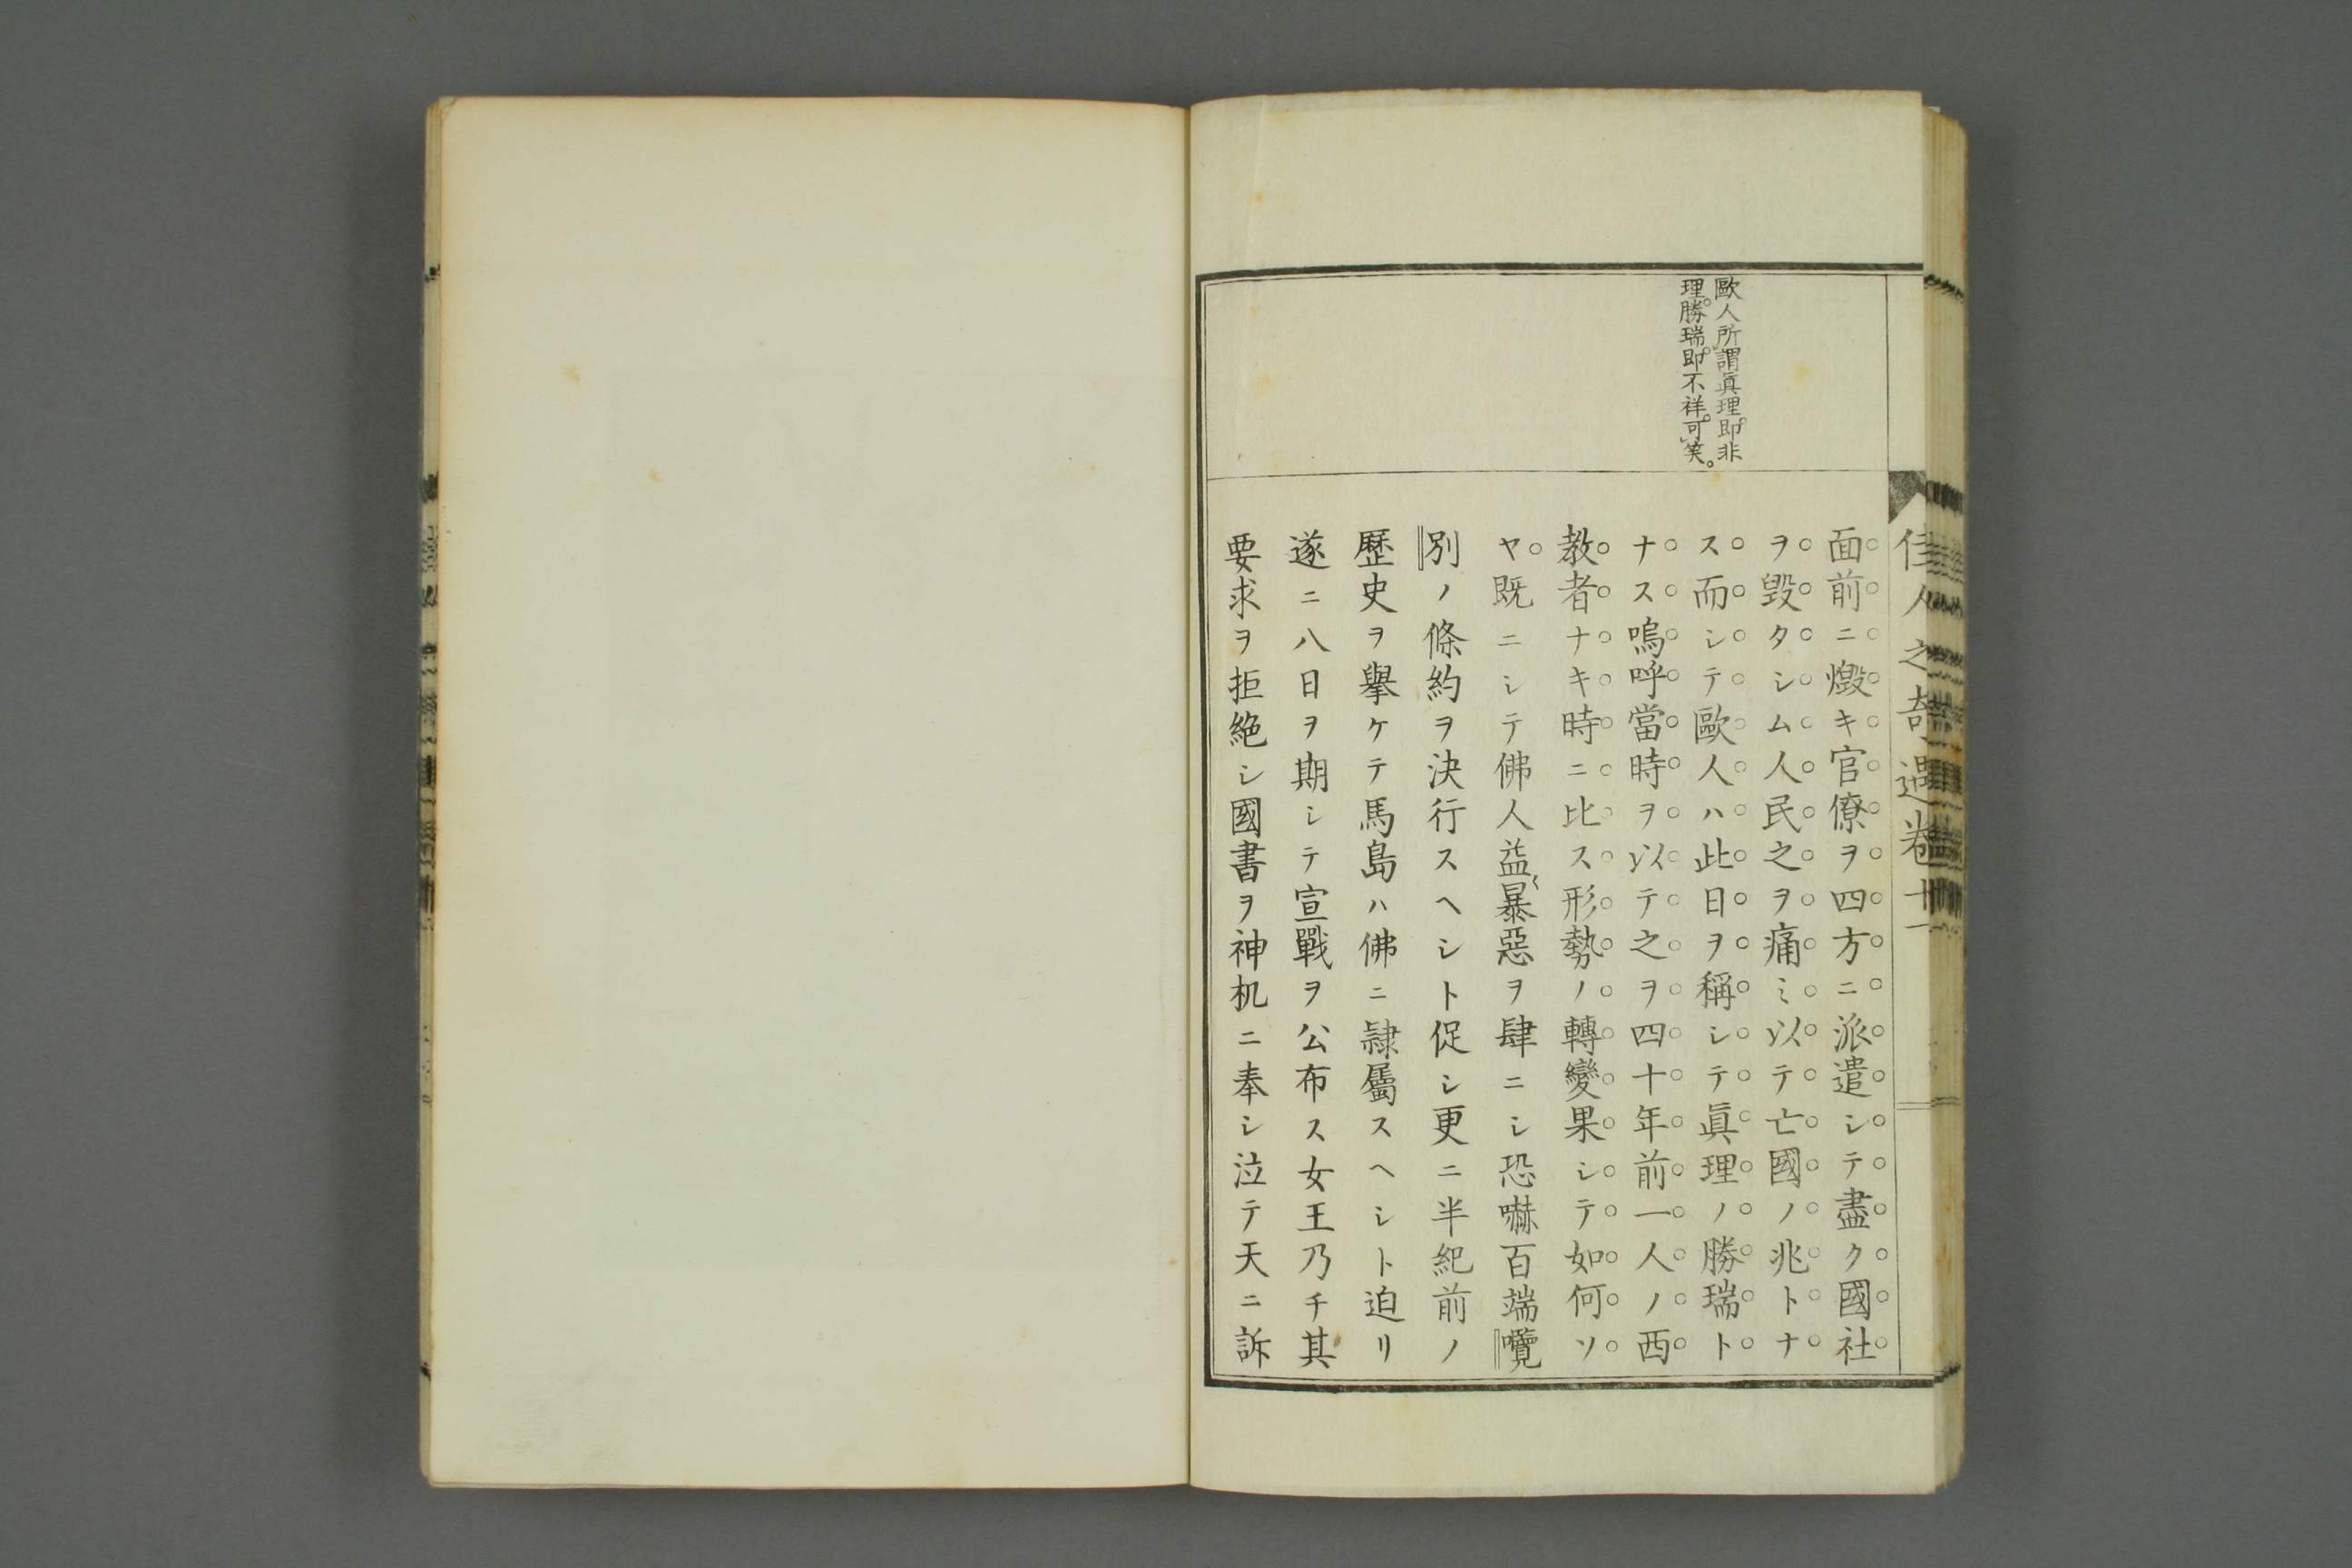 佳人之奇遇卷十一
歐人所謂眞理。即非
理。勝瑞。即不祥。可笑。
面前ニ燬キ官僚ヲ四方ニ派遣シテ盡ク國社
ヲ毀タシム人民之ヲ痛ミ以テ亡國ノ兆トナ
ス而シテ歐人ハ此日ヲ稱シテ眞理ノ勝瑞ト
ナス嗚呼當時ヲ以テ之ヲ四十年前一人ノ西
教者ナキ時ニ比ス形勢ノ轉變果シテ如何ソ
ヤ既ニシテ佛人益〻暴惡ヲ肆ニシ恐嚇百端囕
別ノ條約ヲ決行スヘシト促シ更ニ半紀前ノ
歷史ヲ擧ケテ馬島ハ佛ニ隷屬スヘシト迫リ
遂ニ八日ヲ期シテ宣戰ヲ公布ス女王乃チ其
要求ヲ拒絶シ國書ヲ神机ニ奉シ泣テ天ニ訴